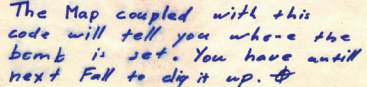 The Map coupled with this
code will tell you where the
bomb is set. You have antill
next Fall to dig it up. ⌖